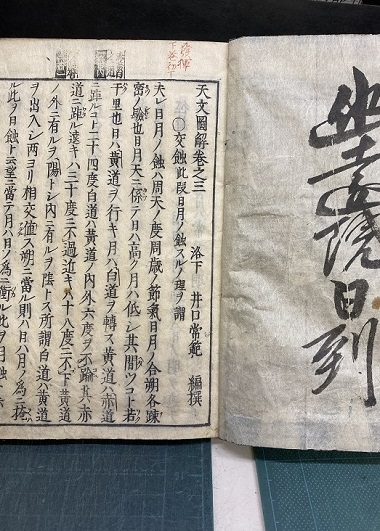 院日列
天文圖解卷之三
洛下 井口常範 編撰
○交蝕此段日月ノ蝕スルノ理ヲ謂
夫レ日月ノ蝕ハ周天ノ度周歳ノ節氣日月ノ合朔各疎
密ノ驗也日月天ニ係テ日ハ高ク月ハ低シ共間ツコト若
千里也日ハ黄道ヲ行キ月ハ白道ヲ轉ス黄道ハ赤
道ニ距ルコト二十四度白道ハ黄道ノ内外六度ヲ不踰其ハ赤
道ニ距ル遠キハ三十度ニ不過近キハ十八度ニ不下黄道
ノ外ニ有ルヲ陽トシ内ニ有ルヲ陰トス所謂白道ハ黄道
ヲ出入シ両ヨリ相交値ス朔ニ當ル則ハ日ハ月ノ為ニ掩
ル此ヲ日蝕ト云望ニ當テ月ハ日ノ為ニ ル此ヲ月蝕